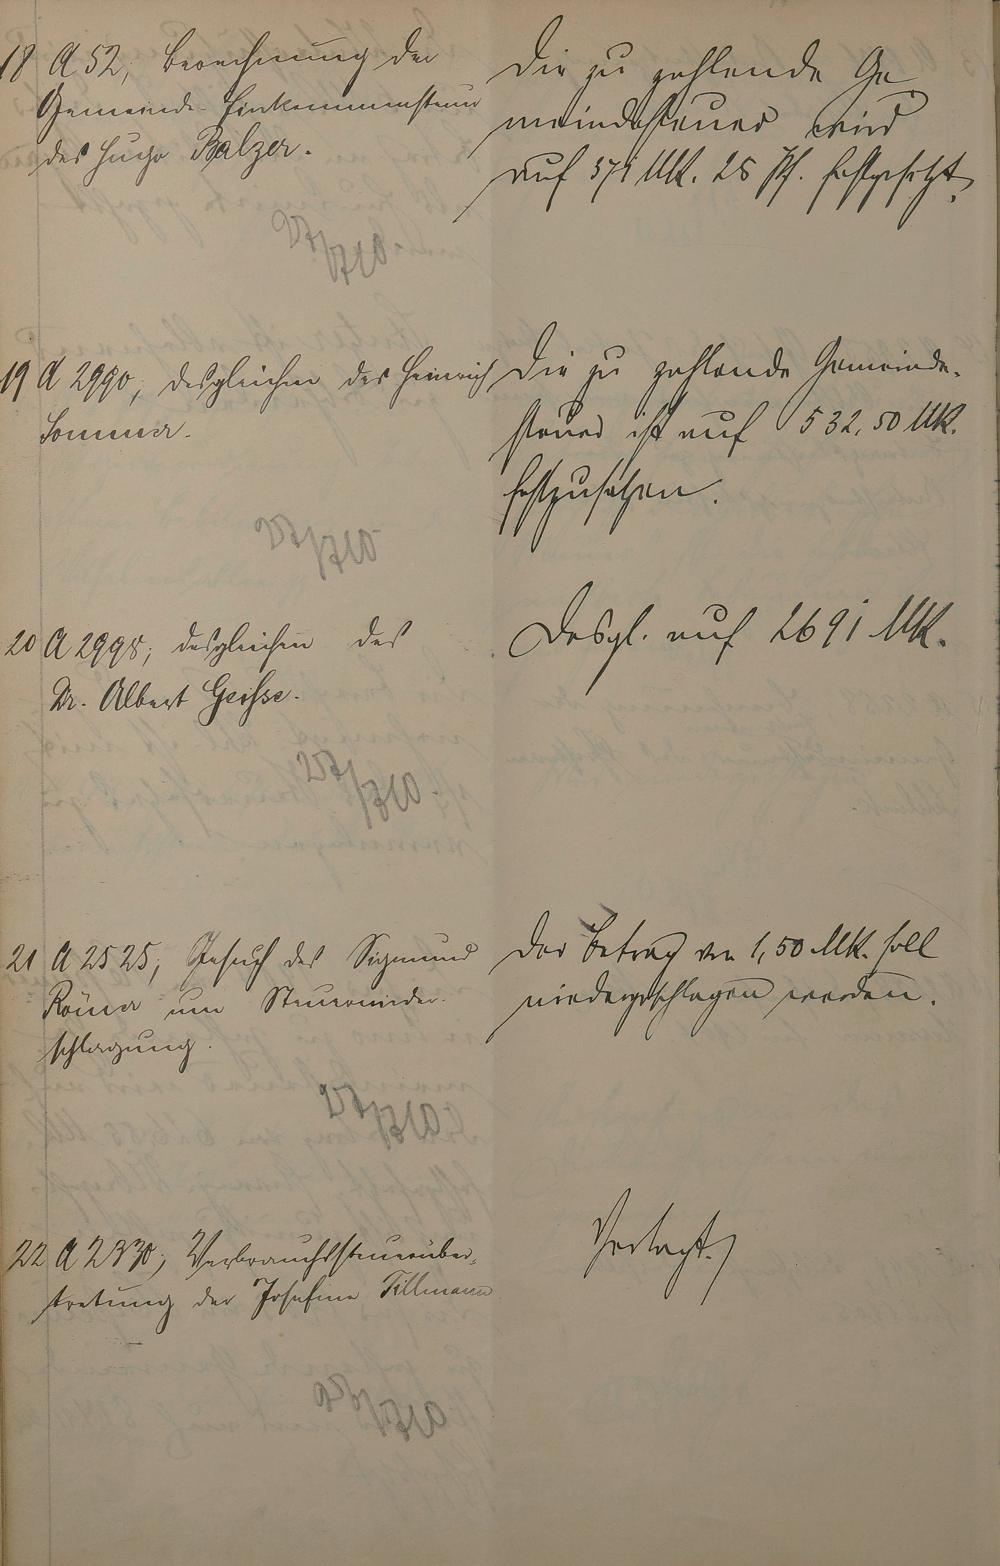 18 A 52, Berechnung der
Gemeinde-Einkommensteuer
des Hugo Balzer.
Die zu zahlende Ge
meindesteuer wird
auf 571 Mk. 25 Pf. festgesetzt.
27/X10
19 A 2990, desgleichen des Heinrich
Sommer.
Die zu zahlende Gemeinde-
steuer ist auf 532,50 Mk.
festzusetzen.
27/X10
20 A 2998; desgleichen des
Dr. Albert Geisse.
Desgl. auf 2691 Mk.
27/X10.
21 A 2525, Gesuch des Sigmund
Römer um Steuernieder-
schlagung.
Der Betrag von 1,50 Mk. soll
niedergeschlagen werden.
27/X10
22 A 2330, Verbrauchssteuerüber-
tretung der Josefine Tillmann
Vertagt.
/X10